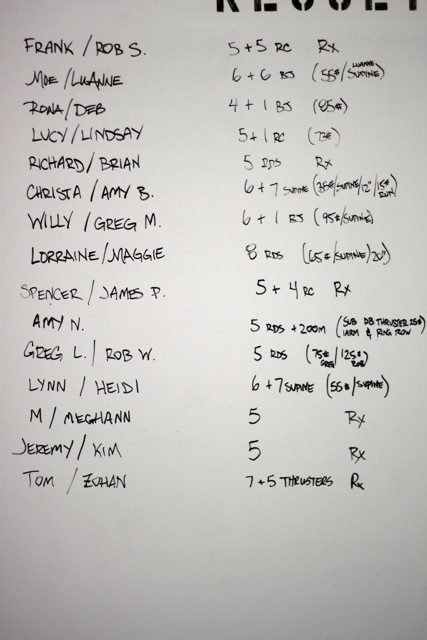 FRANK / ROB S. 5 + 5 RC Rx
MOE / LUANNE 6 + 6 BJ (55#/ LUANNE SUPINE)
RONA / DEB 4 + 1 BJ (85#)
LUCY / LINDSAY 5 + 1 RC (73#)
RICHARD / BRIAN 5 RDS Rx
CHRISTA / AMY B. 6 + 7 SUPINE (35#/SUPINE/12"/15# RUN)
WILLY / GREG M. 6 + 1 BJ (95#/SUPINE)
LORRAINE / MAGGIE 8 RDS (65#/SUPINE/20")
SPENCER / JAMES P. 5 + 4 RC Rx
AMY N. 5 RDS + 200M (SUB DB THRUSTER 25# 1ARM & RING ROW)
GREG L. / ROB W. 5 RDS (75# GREG / 125# ROB)
LYNN / HEIDI 6 + 7 SUPINE (55#/SUPINE)
M / MEGHANN 5 Rx
JEREMY / KIM 5 Rx
TOM / ZOHAN 7 + 5 THRUSTERS Rx